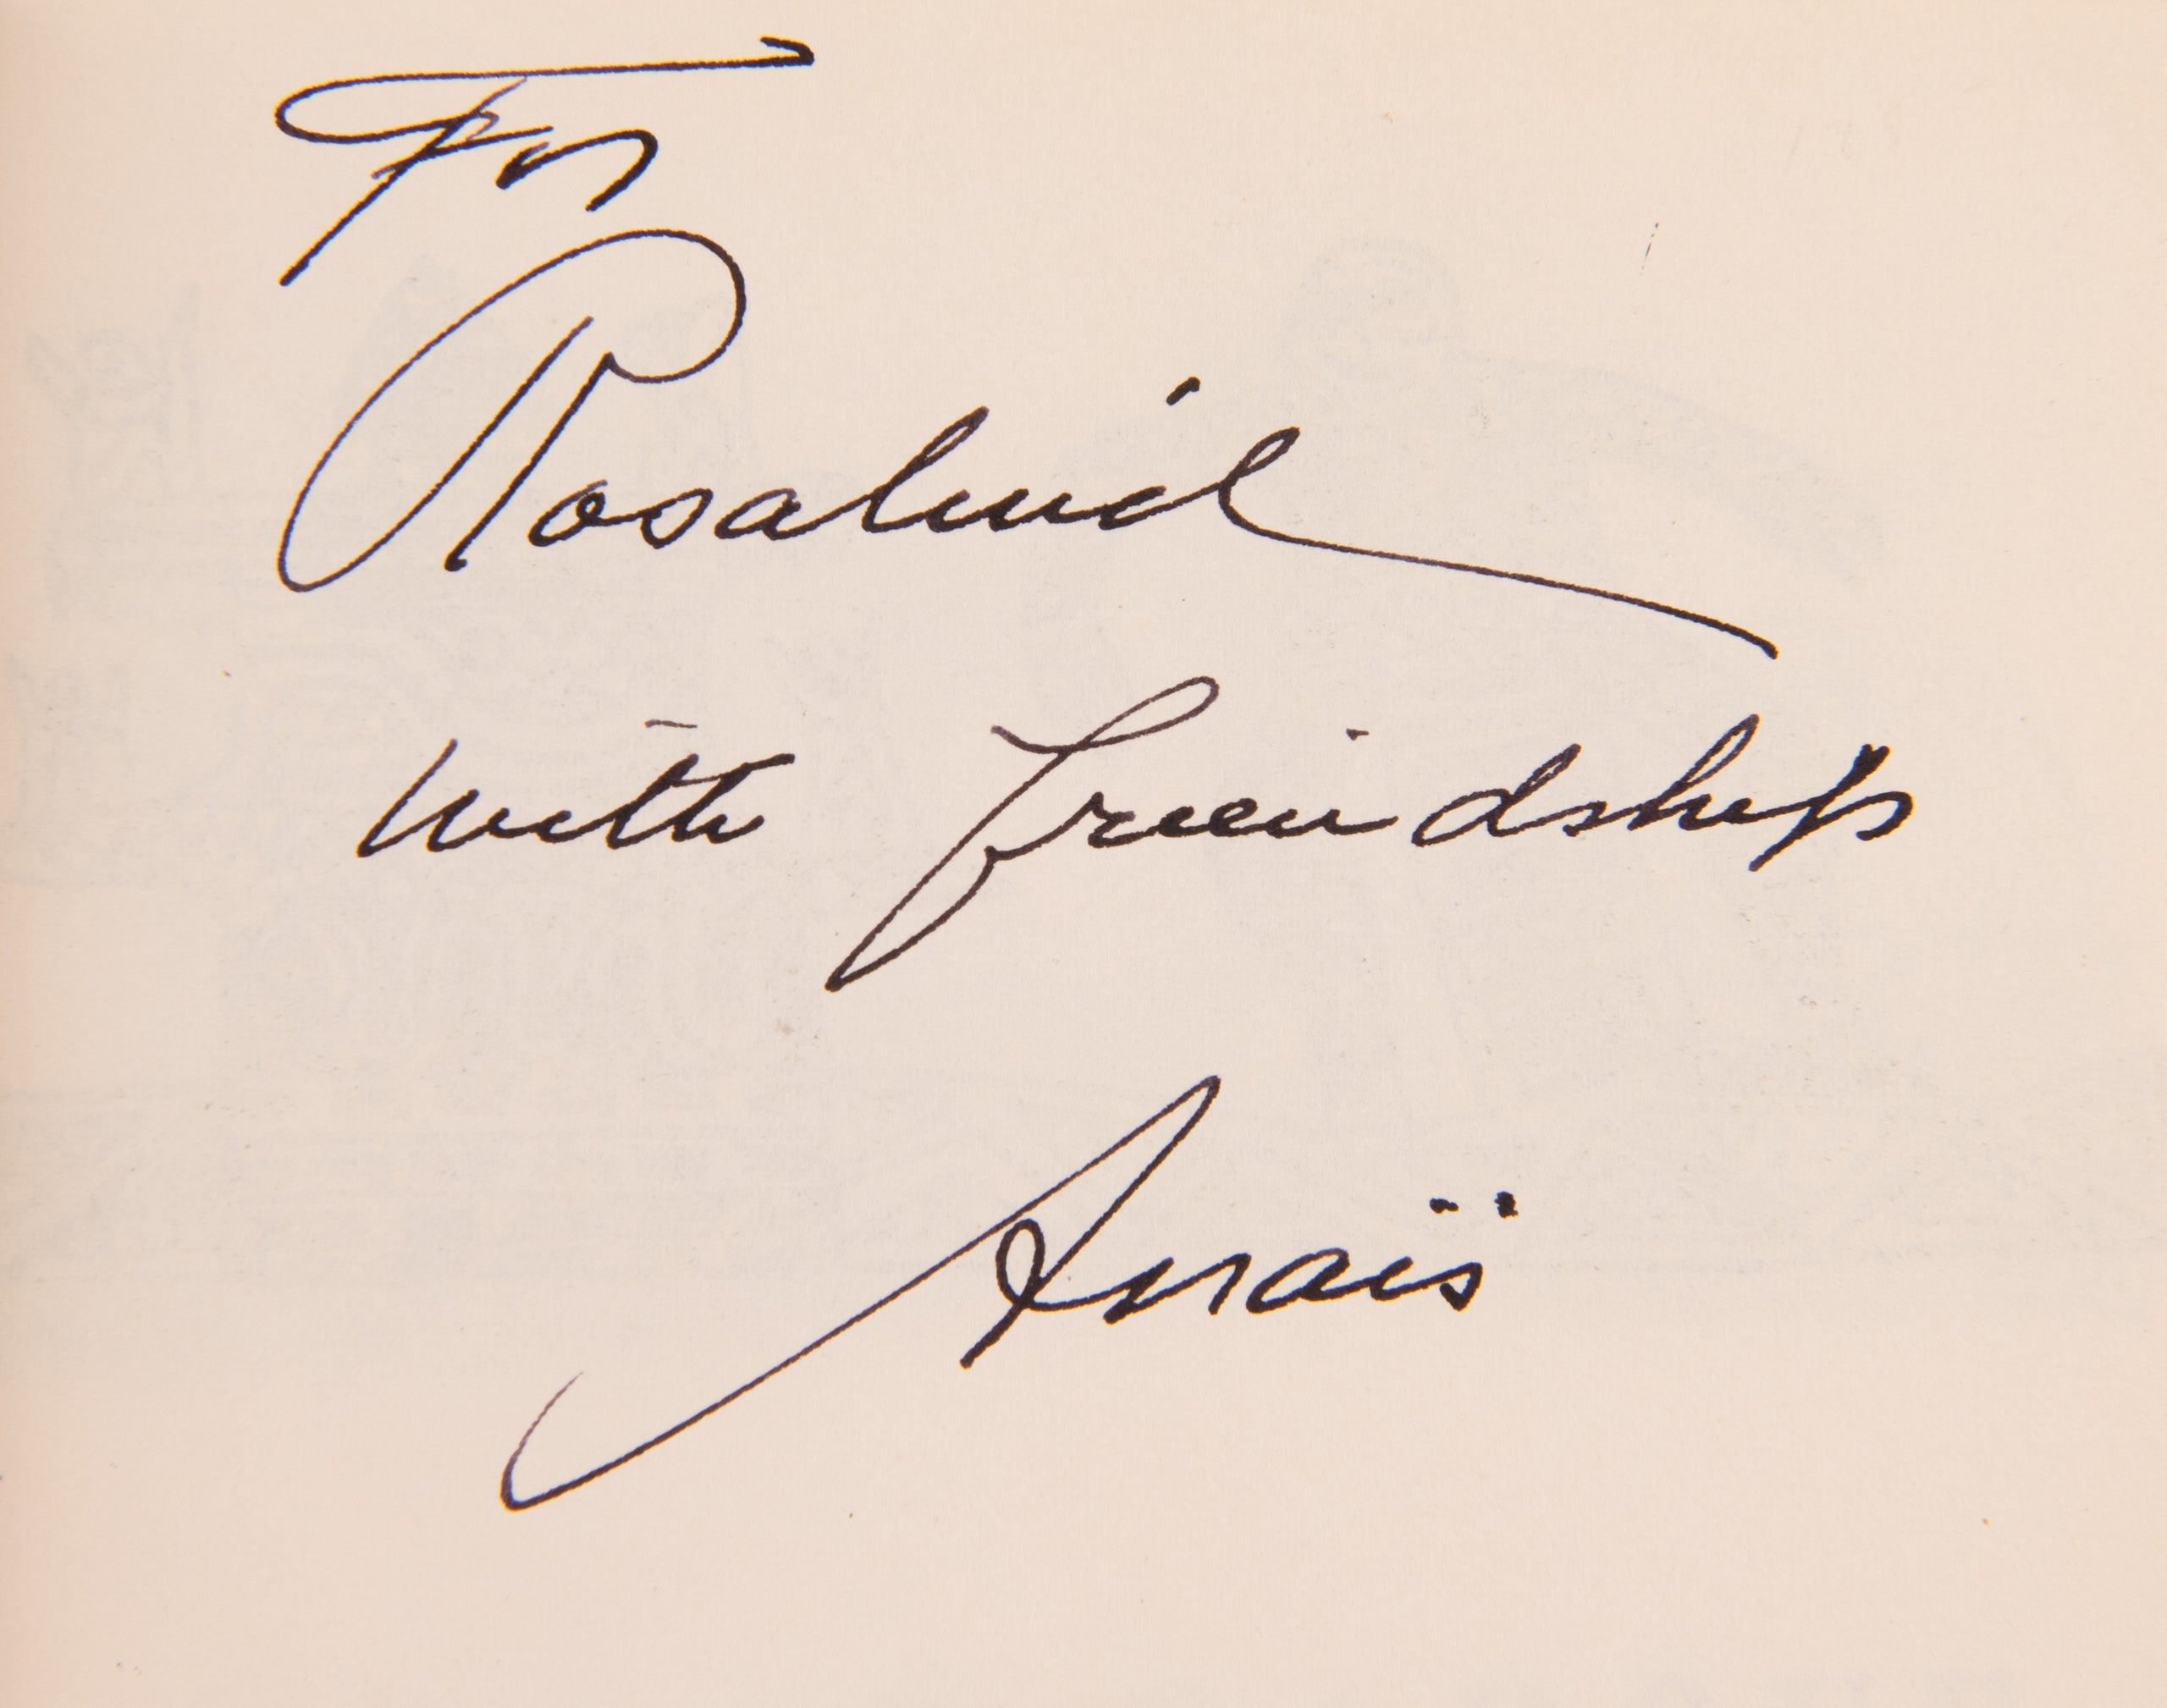 For
Rosalind
with friendship
Anaïs